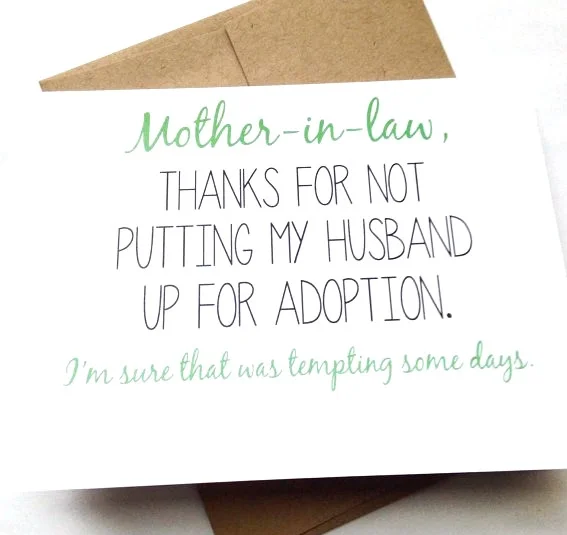 Mother-in-law,
THANKS FOR NOT
PUTTING MY HUSBAND
UP FOR ADOPTION.
I'm sure that was tempting some days.